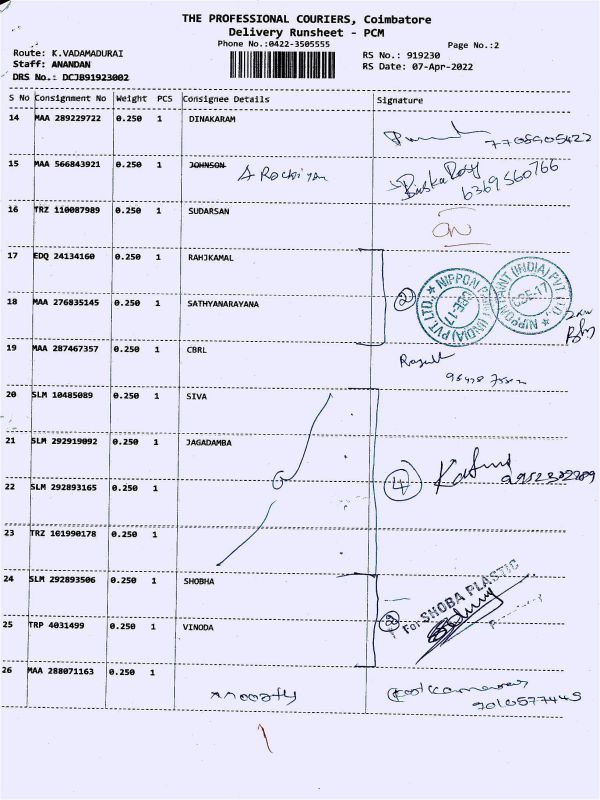 THE PROFESSIONAL COURIERS, Coimbatore
Delivery Runsheet - PCM
Phone No.:0422-3505555
Page No.:2
Route: K.VADAMADURAI
RS No.: 919230
Staff: ANANDAN
RS Date: 07-Apr-2022
DRS No.: DCJB91923002
S No Consignment No Weight PCS Consignee Details Signature
14 MAA 289229722 0.250 1 DINAKARAM
7708905422
15 MAA 566843921 0.250 1 JOHNSON
6369560766
16 TRZ 110087989 0.250 1 SUDARSAN
17 EDQ 24134160 0.250 1 RAHJKAMAL
2
NIPPON PAINT (INDIA) PVT. LTD. ★ CBE-17
NIPPON PAINT (INDIA) PVT. LTD. ★ CBE-17
18 MAA 276835145 0.250 1 SATHYANARAYANA
19 MAA 287467357 0.250 1 CBRL
20 SLM 10485089 0.250 1 SIVA
21 SLM 292919092 0.250 1 JAGADAMBA
4
22 SLM 292893165 0.250 1
23 TRZ 101990178 0.250 1
24 SLM 292893506 0.250 1 SHOBHA
2
For SHOBA PLASTIC
25 TRP 4031499 0.250 1 VINODA
26 MAA 288071163 0.250 1